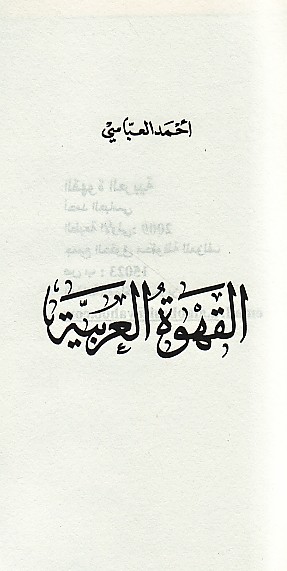 أَحْمَد العبّاسيّ
القَهْوَةُ العَرَبيَّة